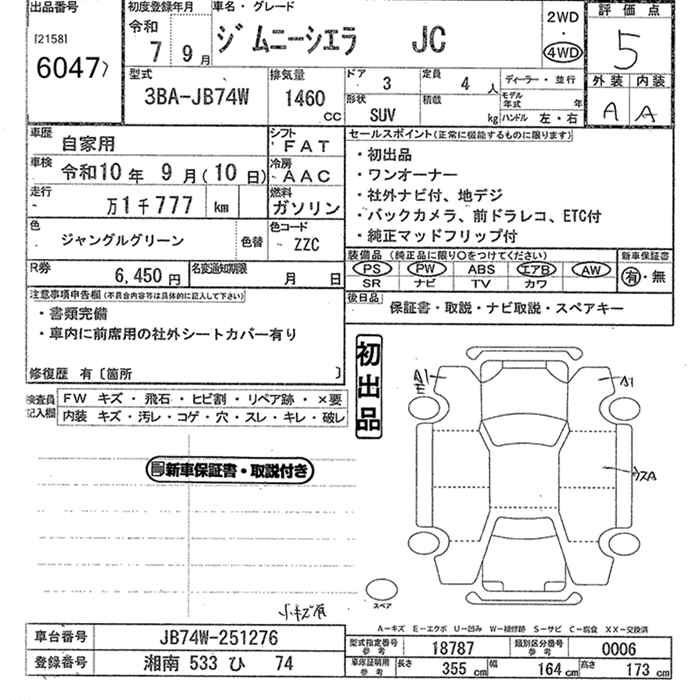 出品番号
[2158]
6047)
初度登録年月
令和
7 9月
車名・グレード
ジムニーシエラ JC
2WD
・
4WD
評価点
5
外装 内装
A A
型式
3BA-JB74W
排気量
1460
cc
ドア 3
定員 4 人
ディーラー・並行
形状
SUV
積載
kg
モデル年式 年
ハンドル 左・右
車歴 自家用
シフト FAT
車検 令和10年 9月(10日)
冷房 AAC
走行 万1千777 km
燃料 ガソリン
色 ジャングルグリーン 色替
色コード ZZC
R券 6,450円
名変通知期限 月 日
セールスポイント(正常に機能するものに限ります)
・初出品
・ワンオーナー
・社外ナビ付、地デジ
・バックカメラ、前ドラレコ、ETC付
・純正マッドフリップ付
装備品 (純正品に限り○をつけてください)
PS PW ABS エアB AW
SR ナビ TV カワ
新車保証書
有・無
後日品 保証書・取説・ナビ取説・スペアキー
注意事項申告欄(不具合内容等は具体的に記入して下さい)
・書類完備
・車内に前席用の社外シートカバー有り
修復歴 有〔箇所 〕
検査員記入欄
FW キズ・飛石・ヒビ割・リペア跡・×要
内装 キズ・汚レ・コゲ・穴・スレ・キレ・破レ
初出品
新車保証書・取説付き
A1
E
A1
スペア
A-キズ E-エクボ U-凹み W-補修跡 S-サビ C-腐食 XX-交換済
車台番号 JB74W-251276
登録番号 湘南 533 ひ 74
型式指定番号 参考 18787
類別区分番号 参考 0006
車庫証明用 参考 長さ 355 cm 幅 164 cm 高さ 173 cm